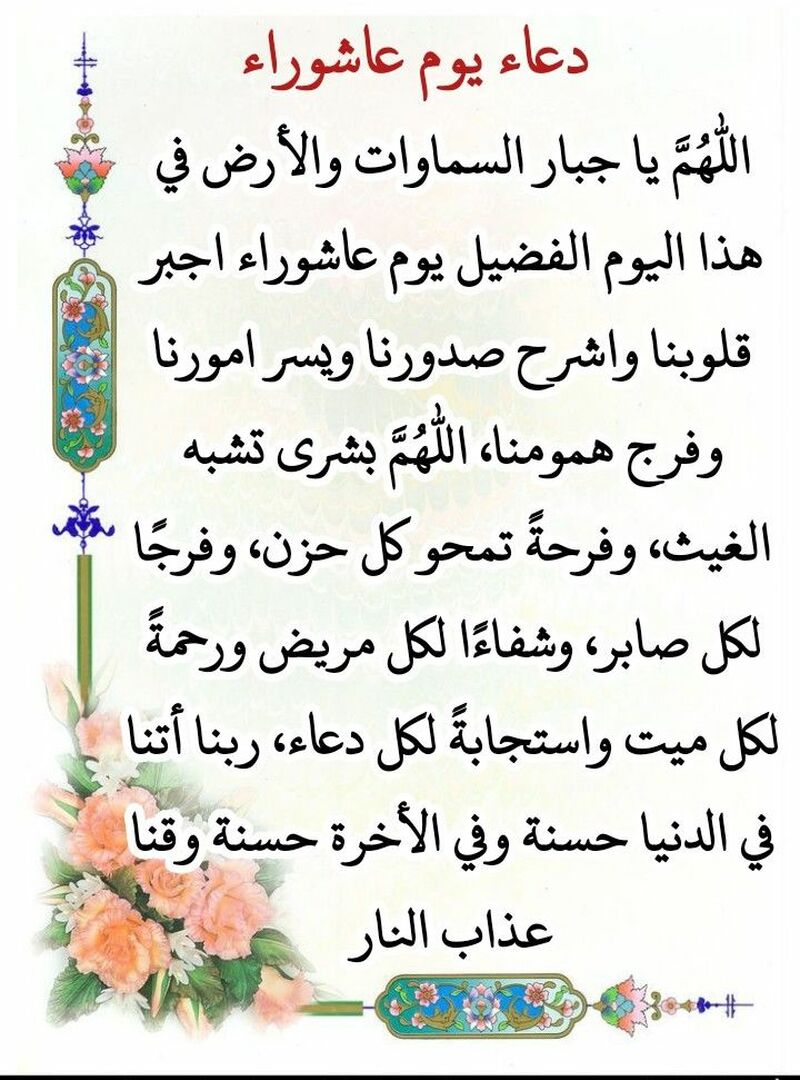 دعاء يوم عاشوراء
اللَّهُمَّ يا جبار السماوات والأرض في
هذا اليوم الفضيل يوم عاشوراء اجبر
قلوبنا واشرح صدورنا ويسر امورنا
وفرج همومنا، اللَّهُمَّ بشرى تشبه
الغيث، وفرحةً تمحو كل حزن، وفرجًا
لكل صابر، وشفاءًا لكل مريض ورحمةً
لكل ميت واستجابةً لكل دعاء، ربنا أتنا
في الدنيا حسنة وفي الأخرة حسنة وقنا
عذاب النار